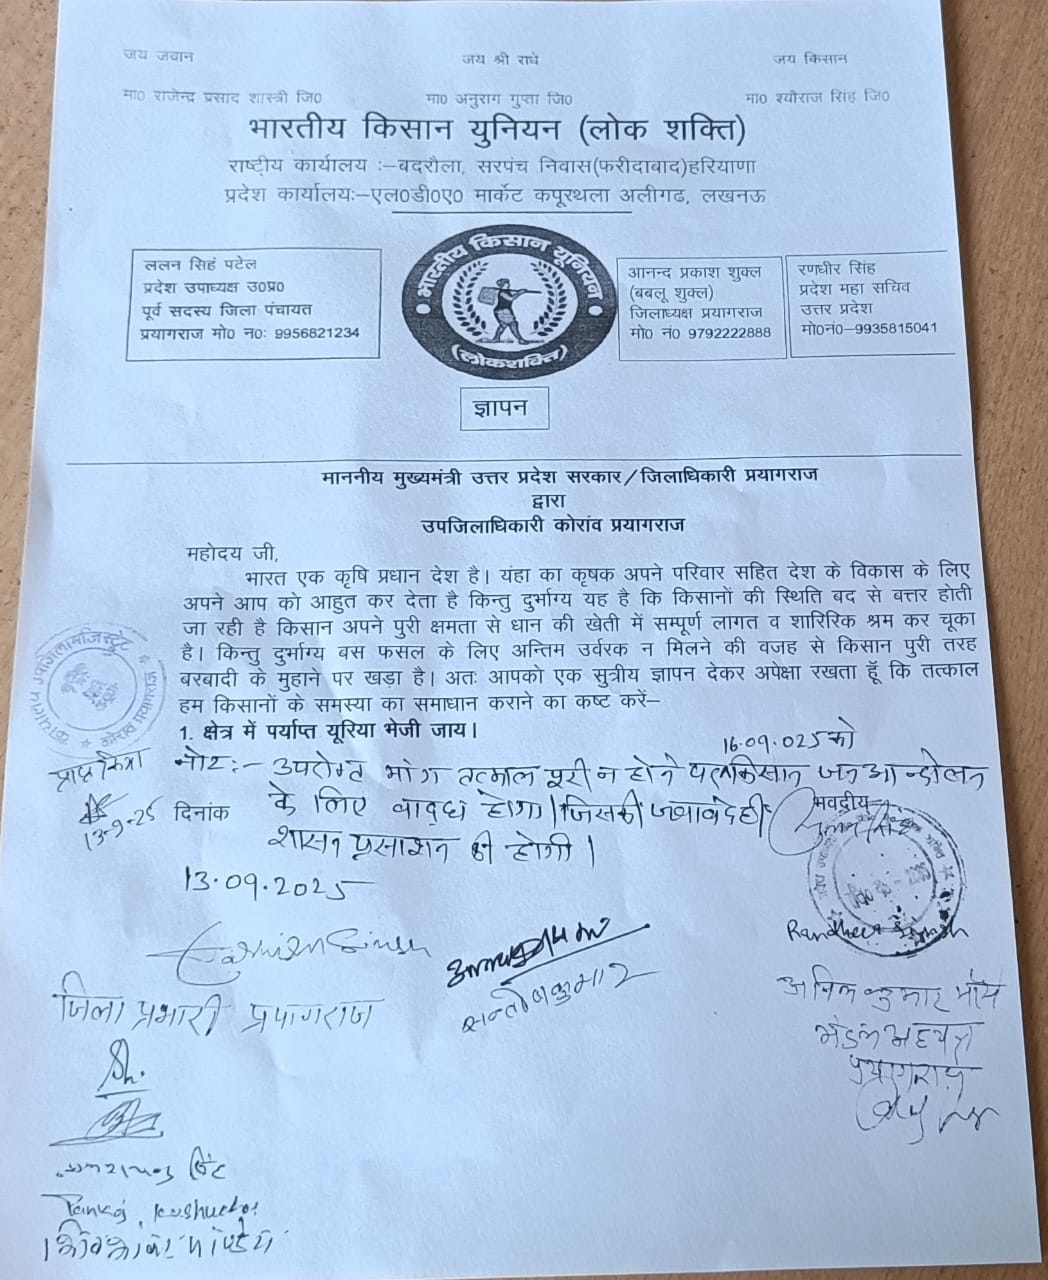 जय जवान जय श्री राधे जय किसान
मा0 राजेन्द्र प्रसाद शास्त्री जि0 मा0 अनुराग गुप्ता जि0 मा0 श्यौराज सिंह जि0
भारतीय किसान युनियन (लोक शक्ति)
राष्ट्रीय कार्यालय :–बदरौला, सरपंच निवास(फरीदाबाद)हरियाणा
प्रदेश कार्यालयः–एल0डी0ए0 मार्केट कपूरथला अलीगढ, लखनऊ
ललन सिहं पटेल
प्रदेश उपाध्यक्ष उ0प्र0
पूर्व सदस्य जिला पंचायत
प्रयागराज मो0 न0: 9956821234
भारतीय किसान यूनियन
(लोकशक्ति)
आनन्द प्रकाश शुक्ल
(बबलू शुक्ल)
जिलाध्यक्ष प्रयागराज
मो0 नं0 9792222888
रणधीर सिंह
प्रदेश महा सचिव
उत्तर प्रदेश
मो0नं0–9935815041
ज्ञापन
माननीय मुख्यमंत्री उत्तर प्रदेश सरकार/जिलाधिकारी प्रयागराज
द्वारा
उपजिलाधिकारी कोरांव प्रयागराज
महोदय जी,
भारत एक कृषि प्रधान देश है। यंहा का कृषक अपने परिवार सहित देश के विकास के लिए
अपने आप को आहुत कर देता है किन्तु दुर्भाग्य यह है कि किसानों की स्थिति बद से बत्तर होती
जा रही है किसान अपने पुरी क्षमता से धान की खेती में सम्पूर्ण लागत व शारिरिक श्रम कर चूका
है। किन्तु दुर्भाग्य बस फसल के लिए अन्तिम उर्वरक न मिलने की वजह से किसान पुरी तरह
बरबादी के मुहाने पर खड़ा है। अतः आपको एक सुत्रीय ज्ञापन देकर अपेक्षा रखता हूॅ कि तत्काल
हम किसानों के समस्या का समाधान कराने का कष्ट करें–
1. क्षेत्र में पर्याप्त यूरिया भेजी जाय।
कार्यालय उपजिलामजिस्ट्रेट
कोरांव प्रयागराज
16.09.025 को
नोट:- उपरोक्त मांग तत्काल पूरी न होने पर किसान जन आन्दोलन
के लिए वाद्ध होगा। जिसकी जवावदेही
शासन प्रसाशन की होगी।
प्राप्त किया
13-9-25
दिनांक
भवदीय
13.09.2025
Randheer Singh
जिला प्रभारी प्रयागराज
सन्तोष कुमार
अनिल कुमार
मंडल अध्यक्ष
प्रयागराज
Pankaj kushwaha